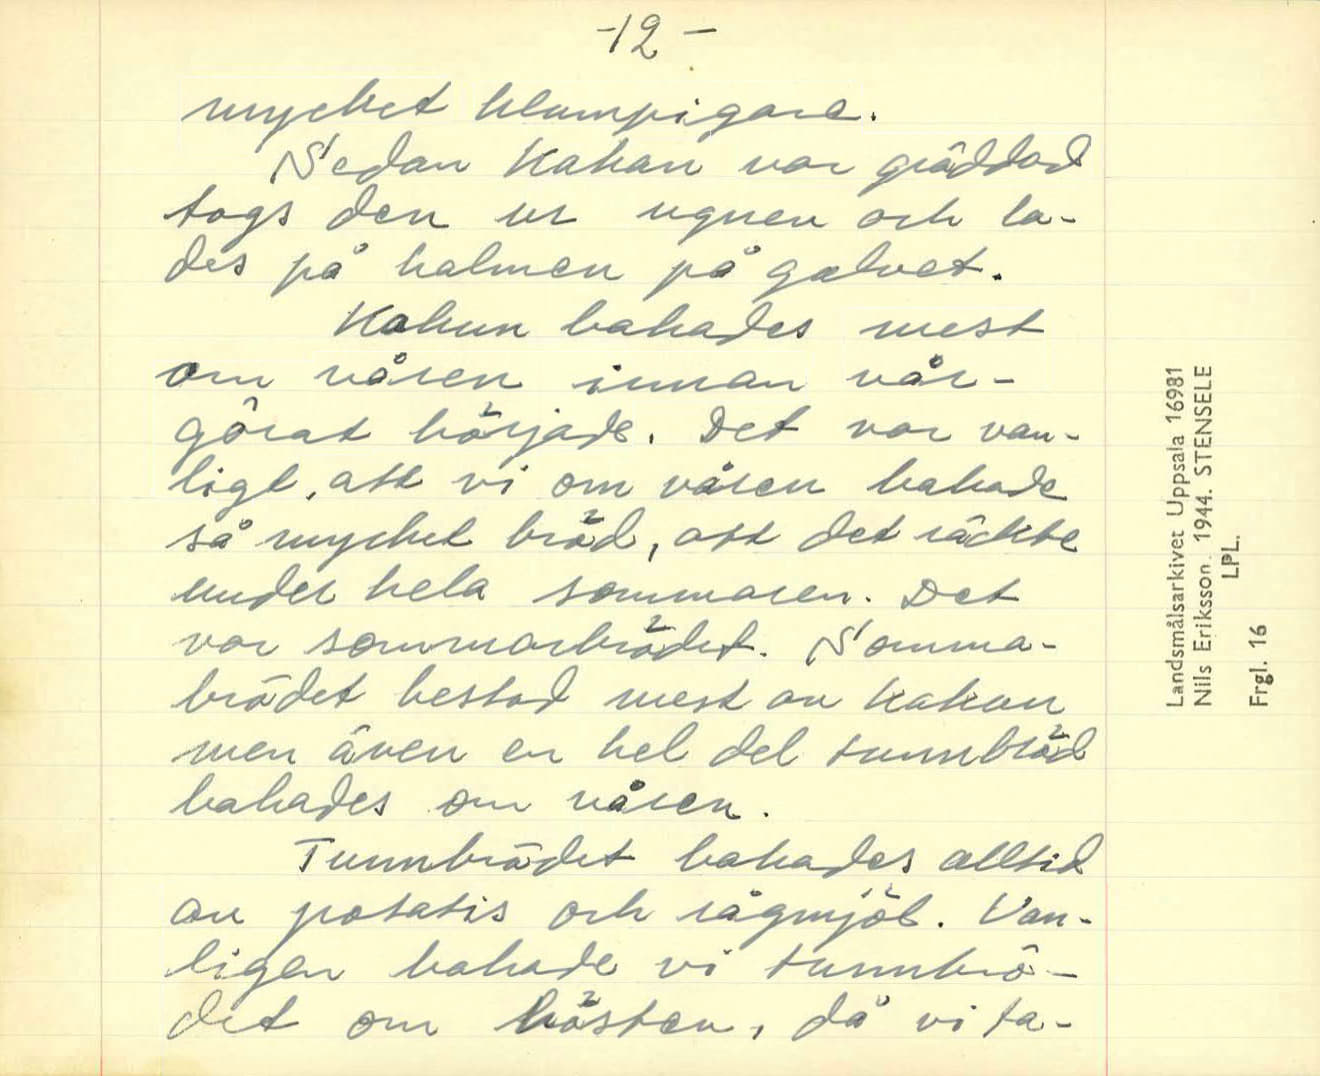 -12-
mycket klumpigare.
Sedan kakan var gräddad
togs den ur ugnen och la-
des på halmen på golvet.
Kakan bakades mest
om våren innan vår-
görat började. Det var van-
ligt, att vi om våren bakade
så mycket bröd, att det räckte
under hela sommaren. Det
var sommarbrödet. Somma-
brödet bestod mest av kakan
men även en hel del tunnbröd
bakades om våren.
Tunnbrödet bakades alltid
av potatis och rågmjöl. Van-
ligen bakade vi tunnbrö-
det om hösten, då vi ta-
Landsmålsarkivet Uppsala 16981
Nils Eriksson. 1944. STENSELE
LPL.
Frgl. 16